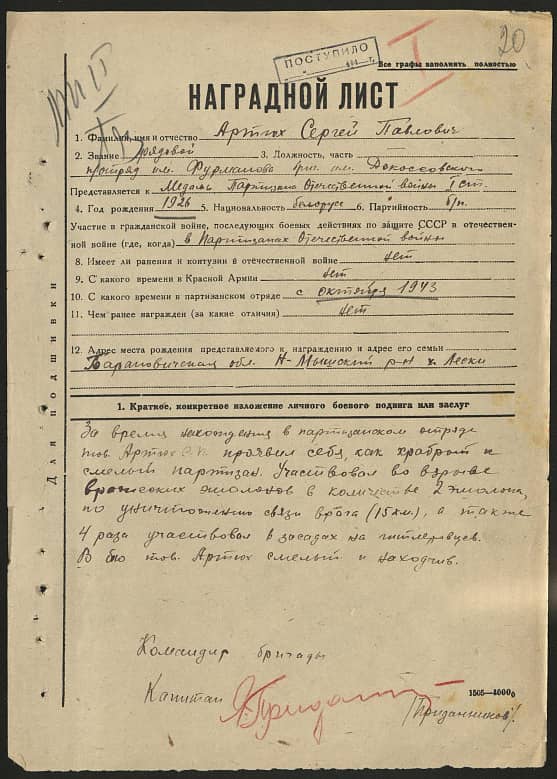 20
ПОСТУПИЛО
194 г.
Все графы заполнять полностью
I
НАГРАДНОЙ ЛИСТ
1. Фамилия, имя и отчество Артюх Сергей Павлович
2. Звание рядовой 3. Должность, часть
п/отряд им. Фурманова бриг. им. Рокоссовского
Представляется к Медаль Партизана Отечественной войны I ст.
4. Год рождения 1926 5. Национальность белорус 6. Партийность б/п.
Участие в гражданской войне, последующих боевых действиях по защите СССР в отечествен-
ной войне (где, когда) в Партизанах Отечественной войны
8. Имеет ли ранения и контузии в отечественной войне нет
9. С какого времени в Красной Армии нет
10. С какого времени в партизанском отряде с октября 1943
11. Чем ранее награжден (за какие отличия) нет
12. Адрес места рождения представляемого к награждению и адрес его семьи
Барановичская обл. Н-Мышский р-н х. Лески
Для подшивки
1. Краткое, конкретное изложение личного боевого подвига или заслуг
За время нахождения в партизанском отряде
тов. Артюх С.П. проявил себя, как храбрый и
смелый партизан. Участвовал во взрыве
вражеских эшелонов в количестве 2 эшелона,
по уничтожению связи врага (15 км), а также
4 раза участвовал в засадах на гитлеровцев.
В бою тов. Артюх смелый и находчив.
Командир бригады
Капитан
1505—4000